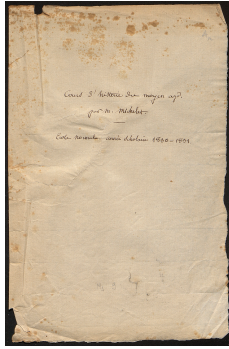 Cours d'histoire du moyen age.
par M. Michelet.
Ecole normale année scholaire 1830-1831